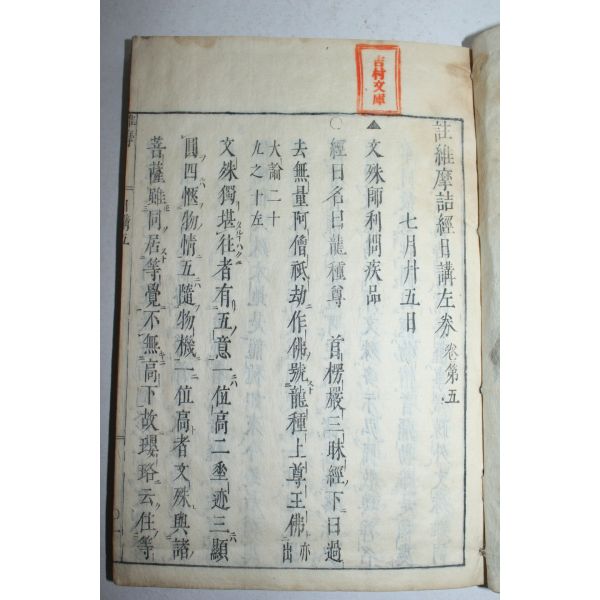 吉村文庫
註維摩詰經日講左券 卷第五
七月廿五日
▲文殊師利問疾品
○經曰名曰龍種尊 首楞嚴三昧經下曰過
去無量阿僧祇劫作佛號龍種上尊王佛亦出
大論二十
九之十左
文殊獨堪往者有五意一位高二垂迹三顯
圓四愜物情五隨物機一位高者文殊與諸
菩薩雖同居等覺不無高下故瓔珞云住等